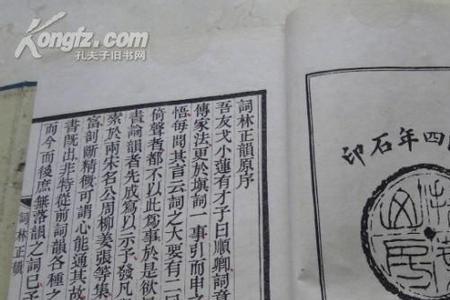 Kongfz.com
孔夫子旧书网
四年石印
詞林正韻原序
吾友戈小蓮有才子曰順卿詞章
傳家法更於填詞一事引而申之
悟每閱其旨云詞之大要有二曰
倚聲者都不以此為事於是欲
責論韻者先成為以示予發凡
索於兩宋名公周柳姜張等集
富剖晰精微可謂心能通其故
書既出非特從前詞韻各種之
而今而後庶無落韻之詞已
詞林正韻